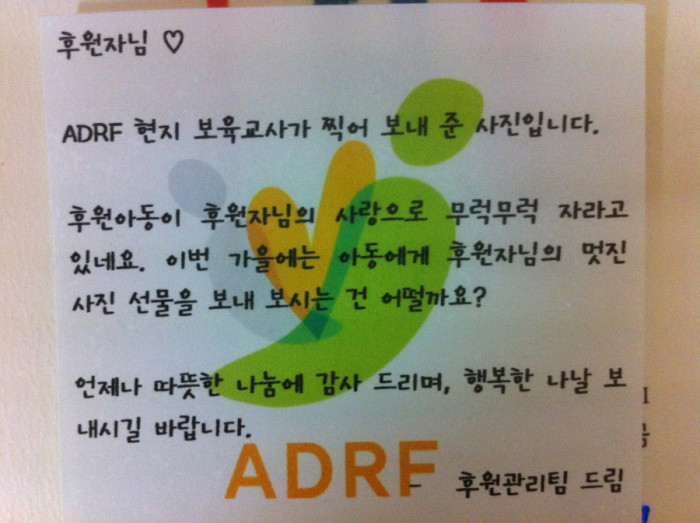 후원자님 ♡
ADRF 현지 보육교사가 찍어 보내 준 사진입니다.
후원아동이 후원자님의 사랑으로 무럭무럭 자라고
있네요. 이번 가을에는 아동에게 후원자님의 멋진
사진 선물을 보내 보시는 건 어떨까요?
언제나 따뜻한 나눔에 감사 드리며, 행복한 나날 보
내시길 바랍니다.
ADRF
- 후원관리팀 드림